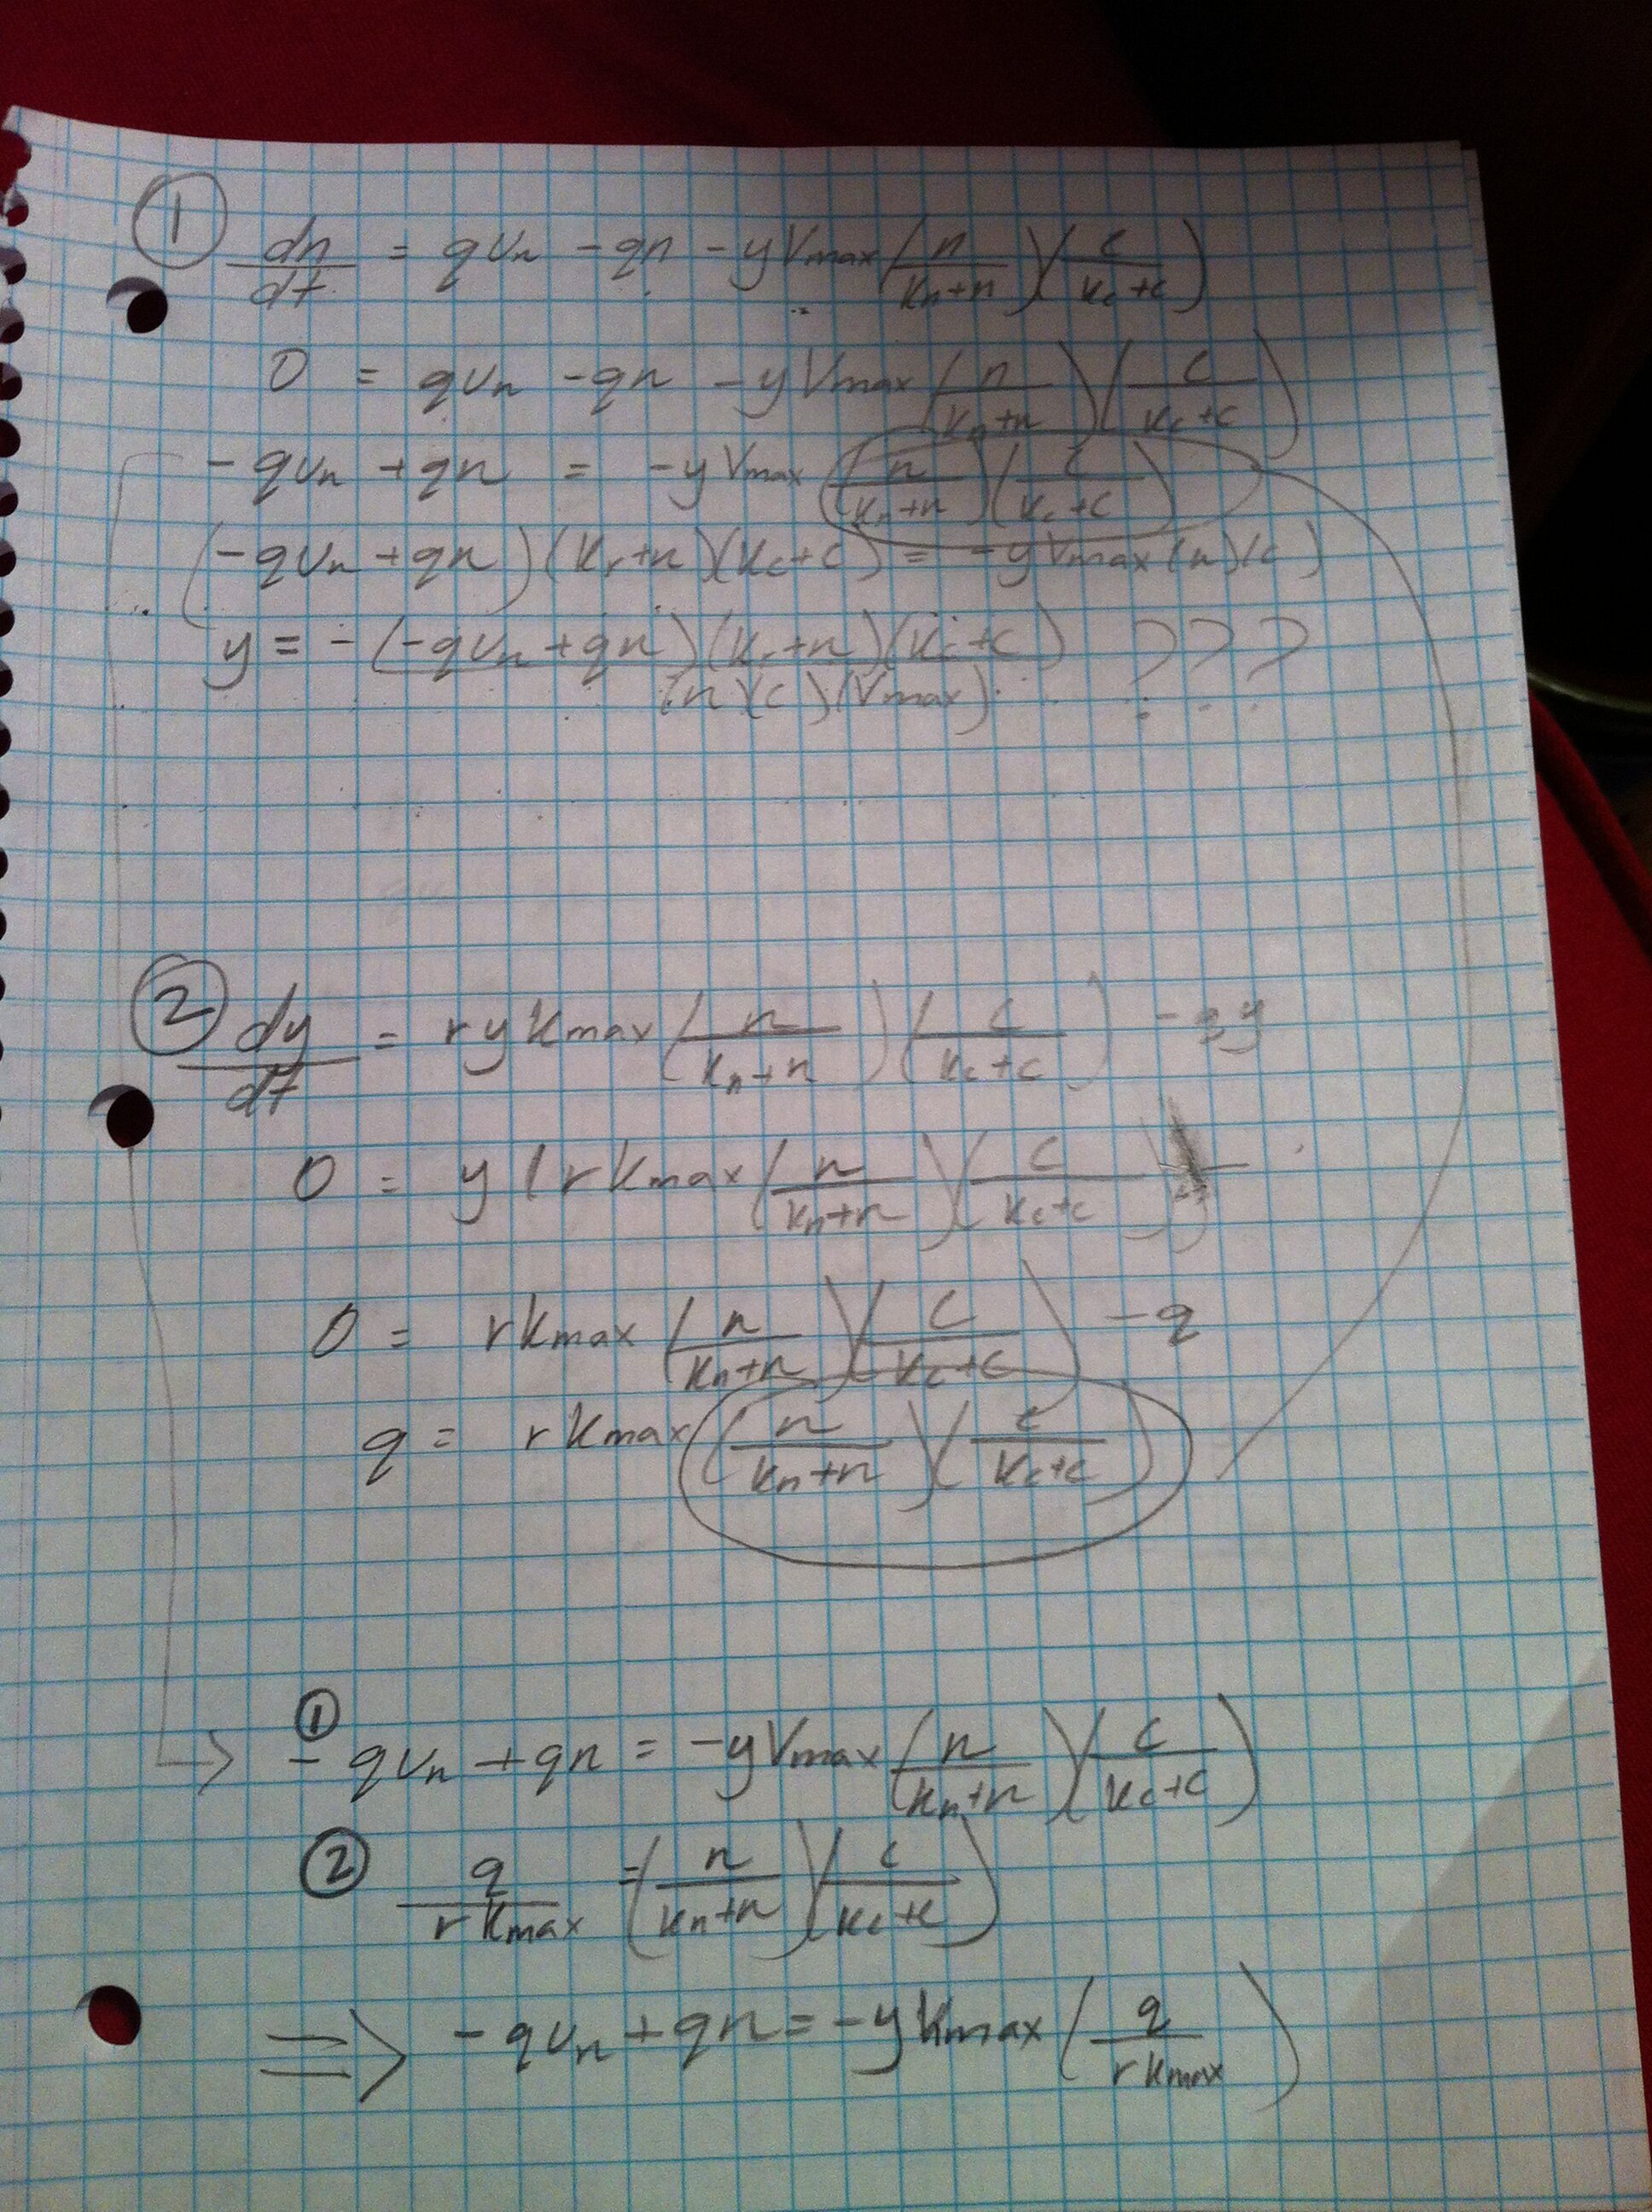 ①
dn/dt = qvn - qn - yVmax(n/(kn+n))(c/(kc+c))
0 = qvn - qn - yVmax(n/(kn+n))(c/(kc+c))
-qvn + qn = -yVmax(n/(kn+n))(c/(kc+c))
(-qvn + qn)(kn+n)(kc+c) = -yVmax(n)(c)
y = -(-qvn + qn)(kn+n)(kc+c)/(n)(c)(Vmax) ???
②
dy/dt = rykmax(n/(kn+n))(c/(kc+c)) - qy
0 = y(rkmax(n/(kn+n))(c/(kc+c))
0 = rkmax(n/(kn+n))(c/(kc+c)) - q
q = rkmax(n/(kn+n))(c/(kc+c))
①
→ -qvn + qn = -yVmax(n/(kn+n))(c/(kc+c))
② q/rkmax = (n/(kn+n))(c/(kc+c))
⇒ -qvn + qn = -ykmax(q/rkmax)